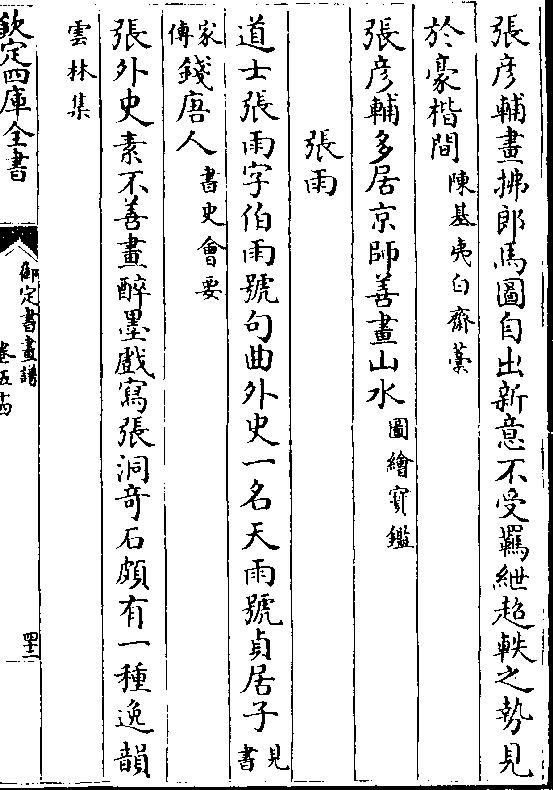 張彦輔畫拂郎馬圖自出新意不受羈紲超軼之勢見
於豪楮間陳基夷白齋藁
張彦輔多居京師善畫山水圖繪寳鑑
張雨
道士張雨字伯雨號句曲外史一名天雨號貞居子見書
家傳錢唐人書史會要
張外史素不善畫醉墨戲寫張洞竒石頗有一種逸韻
雲林集
欽定四庫全書
御定書畫譜
卷五十四